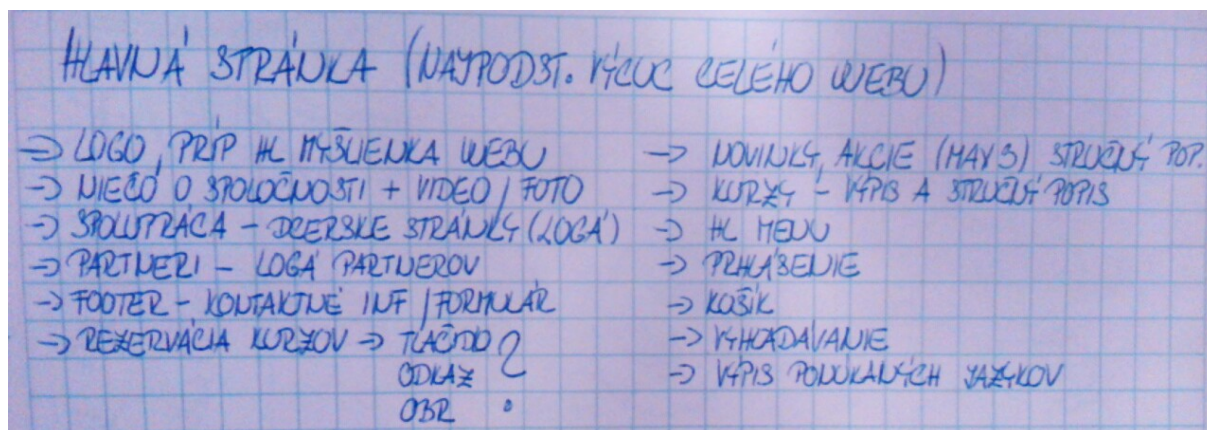 HLAVNÁ STRÁNKA (NAJPODST. VÝCUC CELÉHO WEBU)
→ LOGO, PRÍP HL MYŠLIENKA WEBU
→ NIEČO O SPOLOČNOSTI + VIDEO / FOTO
→ SPOLUPRÁCA - DCERSKE STRÁNKY (LOGÁ)
→ PARTNERI - LOGÁ PARTNEROV
→ FOOTER - KONTAKTNÉ INF / FORMULÁR
→ REZERVÁCIA KURZOV → TLAČIDLO ?
ODKAZ
OBR
→ NOVINKY, AKCIE (MAX 3) STRUČNÝ POP.
→ KURZY - VÝPIS A STRUČNÝ POPIS
→ HL MENU
→ PRIHLÁSENIE
→ KOŠÍK
→ VYHĽADÁVANIE
→ VÝPIS PONÚKANÝCH JAZYKOV